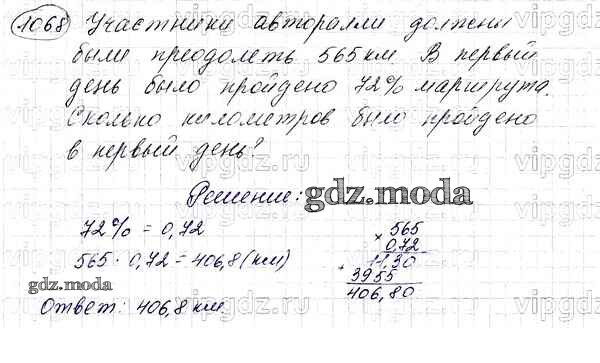 1068 Участники авторалли должны
были преодолеть 565 км. В первый
день было пройдено 72% маршрута.
Сколько километров было пройдено
в первый день?
Решение:
gdz.moda
72% = 0,72
565 · 0,72 = 406,8 (км)
gdz.moda
Ответ: 406,8 км.
565
× 0,72
11,30
+ 3955
406,80
vipgdz.ru